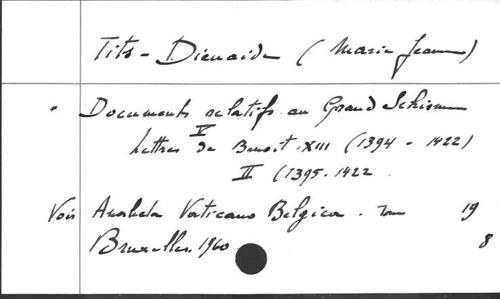 Tits-Dieuaide (Marie Jeanne)
" Documents relatifs au Grand Schisme
V
Lettres de Benoit XIII (1394-1422)
II (1395-1422
Voir Analecta Vaticano Belgica. Tom 19
Bruxelles. 1960 8